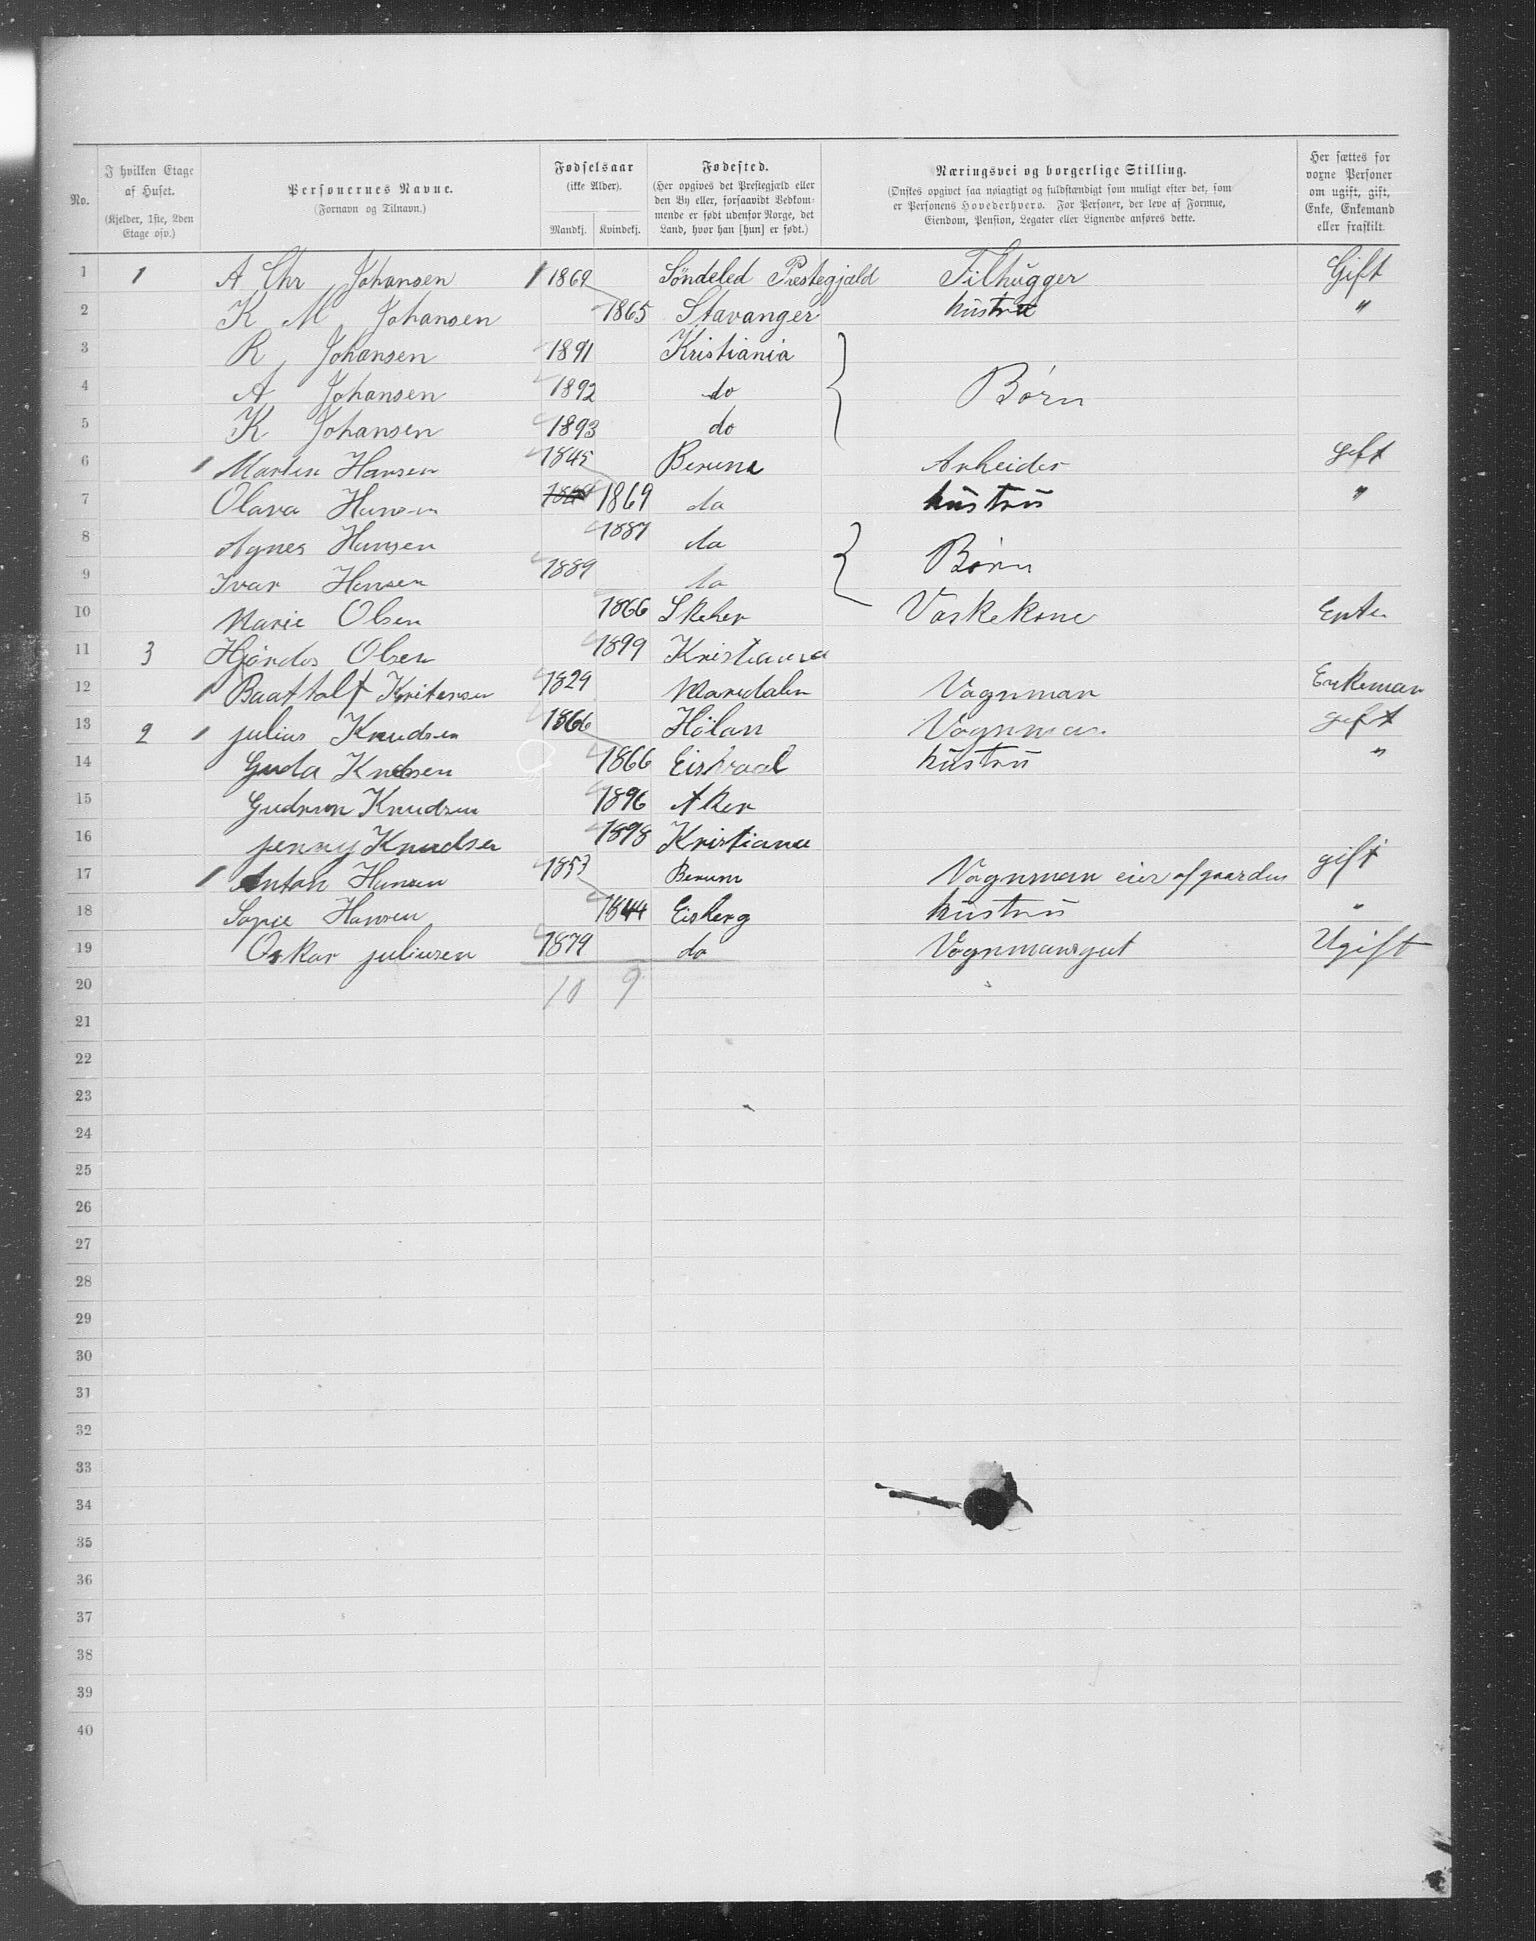 No.
I hvilken Etage af Huset. (Kjelder, 1ste, 2den Etage osv.)
Personernes Navne. (Fornavn og Tilnavn.)
Fødselsaar (ikke Alder). Mandkj. Kvindekj.
Fødested. (Her opgives det Prestegjæld eller den By eller, forsaavidt Vedkommende er født udenfor Norge, det Land, hvor han [hun] er født.)
Næringsvei og borgerlige Stilling. (Ønskes opgivet saa nøiagtigt og fuldstændigt som muligt efter det, som er Personens Hovederhverv. For Personer, der leve af Formue, Eiendom, Pension, Legater eller Lignende anføres dette.
Her sættes for voxne Personer om ugift, gift, Enke, Enkemand eller fraskilt.
1 1 A Chr Johansen 1 1862 Söndeled Prestegjæld Tilhugger Gift
2 K M Johansen 1865 Stavanger hustru "
3 R Johansen 1891 Kristiania
4 A Johansen 1892 do Børn
5 K Johansen 1893 do
6 Martin Hansen 1845 Berum Arbeider gift
7 Olava Hansen 1869 do hustru "
8 Agnes Hansen 1887 do
9 Ivar Hansen 1889 do Børn
10 Marie Olsen 1866 Vaskekone Enke
11 3 Hjördis Olsen 1899 Kristiania
12 1 Kristensen 1829 Maridalen Vognman Enkeman
13 2 1 julius Knudsen 1866 Hölan Vognman gift
14 Knudsen 1866 Eisvaal hustru "
15 Gudrun Knudsen 1896 Aker
16 jenny Knudsen 1898 Kristiania
17 1 Anton Hansen 1853 Berum Vognman eier af gaarden gift
18 Sopie Hansen 1844 Eisberg hustru "
19 Oskar juliusen 1879 do Vognmansgut Ugift
20 10 9
21
22
23
24
25
26
27
28
29
30
31
32
33
34
35
36
37
38
39
40